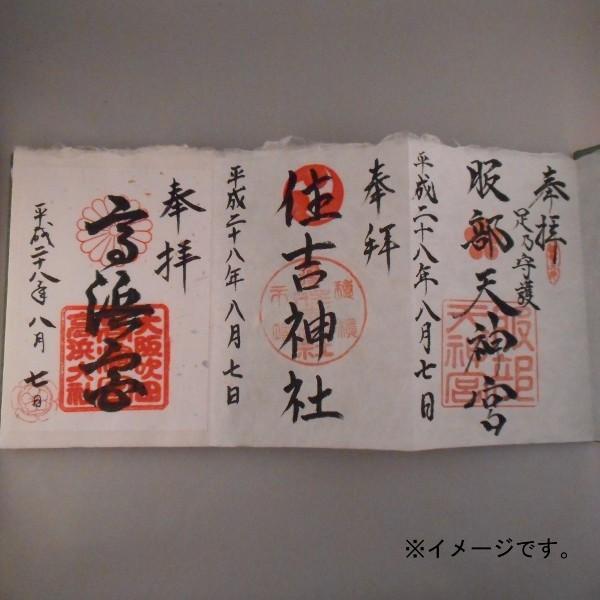 奉拝
足乃守護
服部天神宮
服部
天神宮
平成二十八年八月七日
奉拜
住吉神社
平成二十八年八月七日
奉拝
高浜宮
大阪吹田
高浜大社
平成二十八年八月七日
※イメージです。